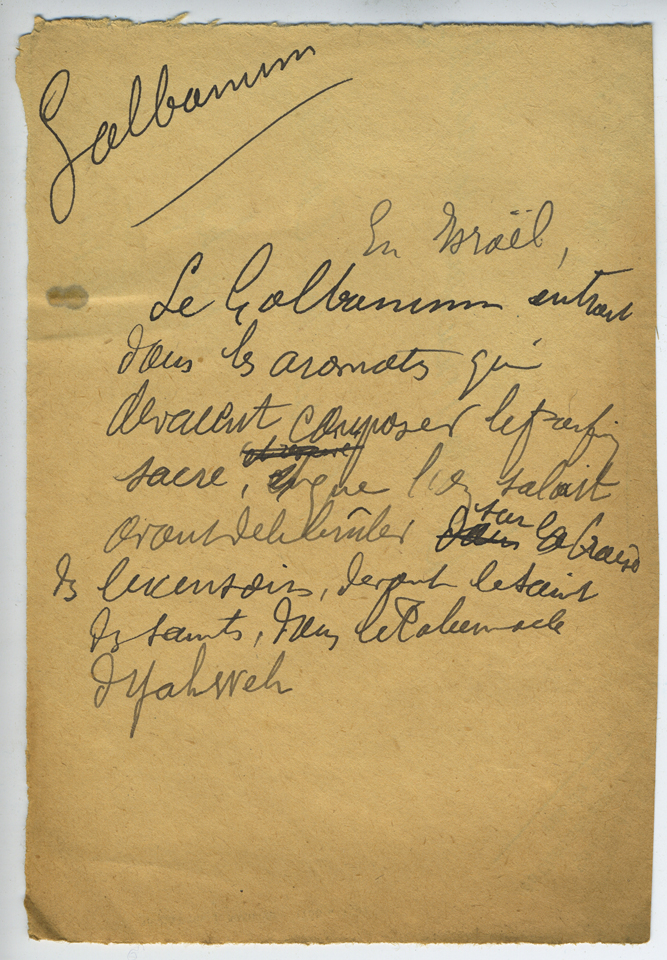 Galbanum
En Israël,
Le Galbanum entrait
dans les aromates qui
devaient composer le parfum
sacré, et que l'on salait
avant de le brûler sur la braise
des encensoirs, devant le saint
des saints, dans le Tabernacle
d'Yahweh